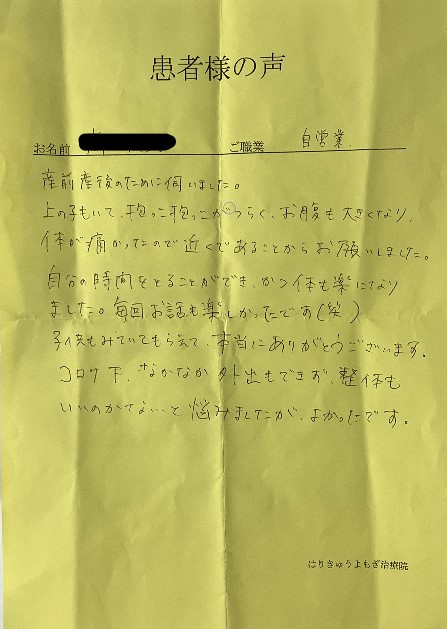 患者様の声
お名前 ご職業 自営業
産前産後のために伺いました。
上の子もいて、抱っこ抱っこがつらく、お腹も大きくなり、
体が痛かったので近くであることからお願いしました。
自分の時間をとることができ、かつ体も楽になり
ました。毎回お話も楽しかったです(笑)
子供もみていてもらえて、本当にありがとうございます。
コロナ下、なかなか外出もできず、整体も
いいのかなぁと悩みましたが、よかったです。
はりきゅうよもぎ治療院